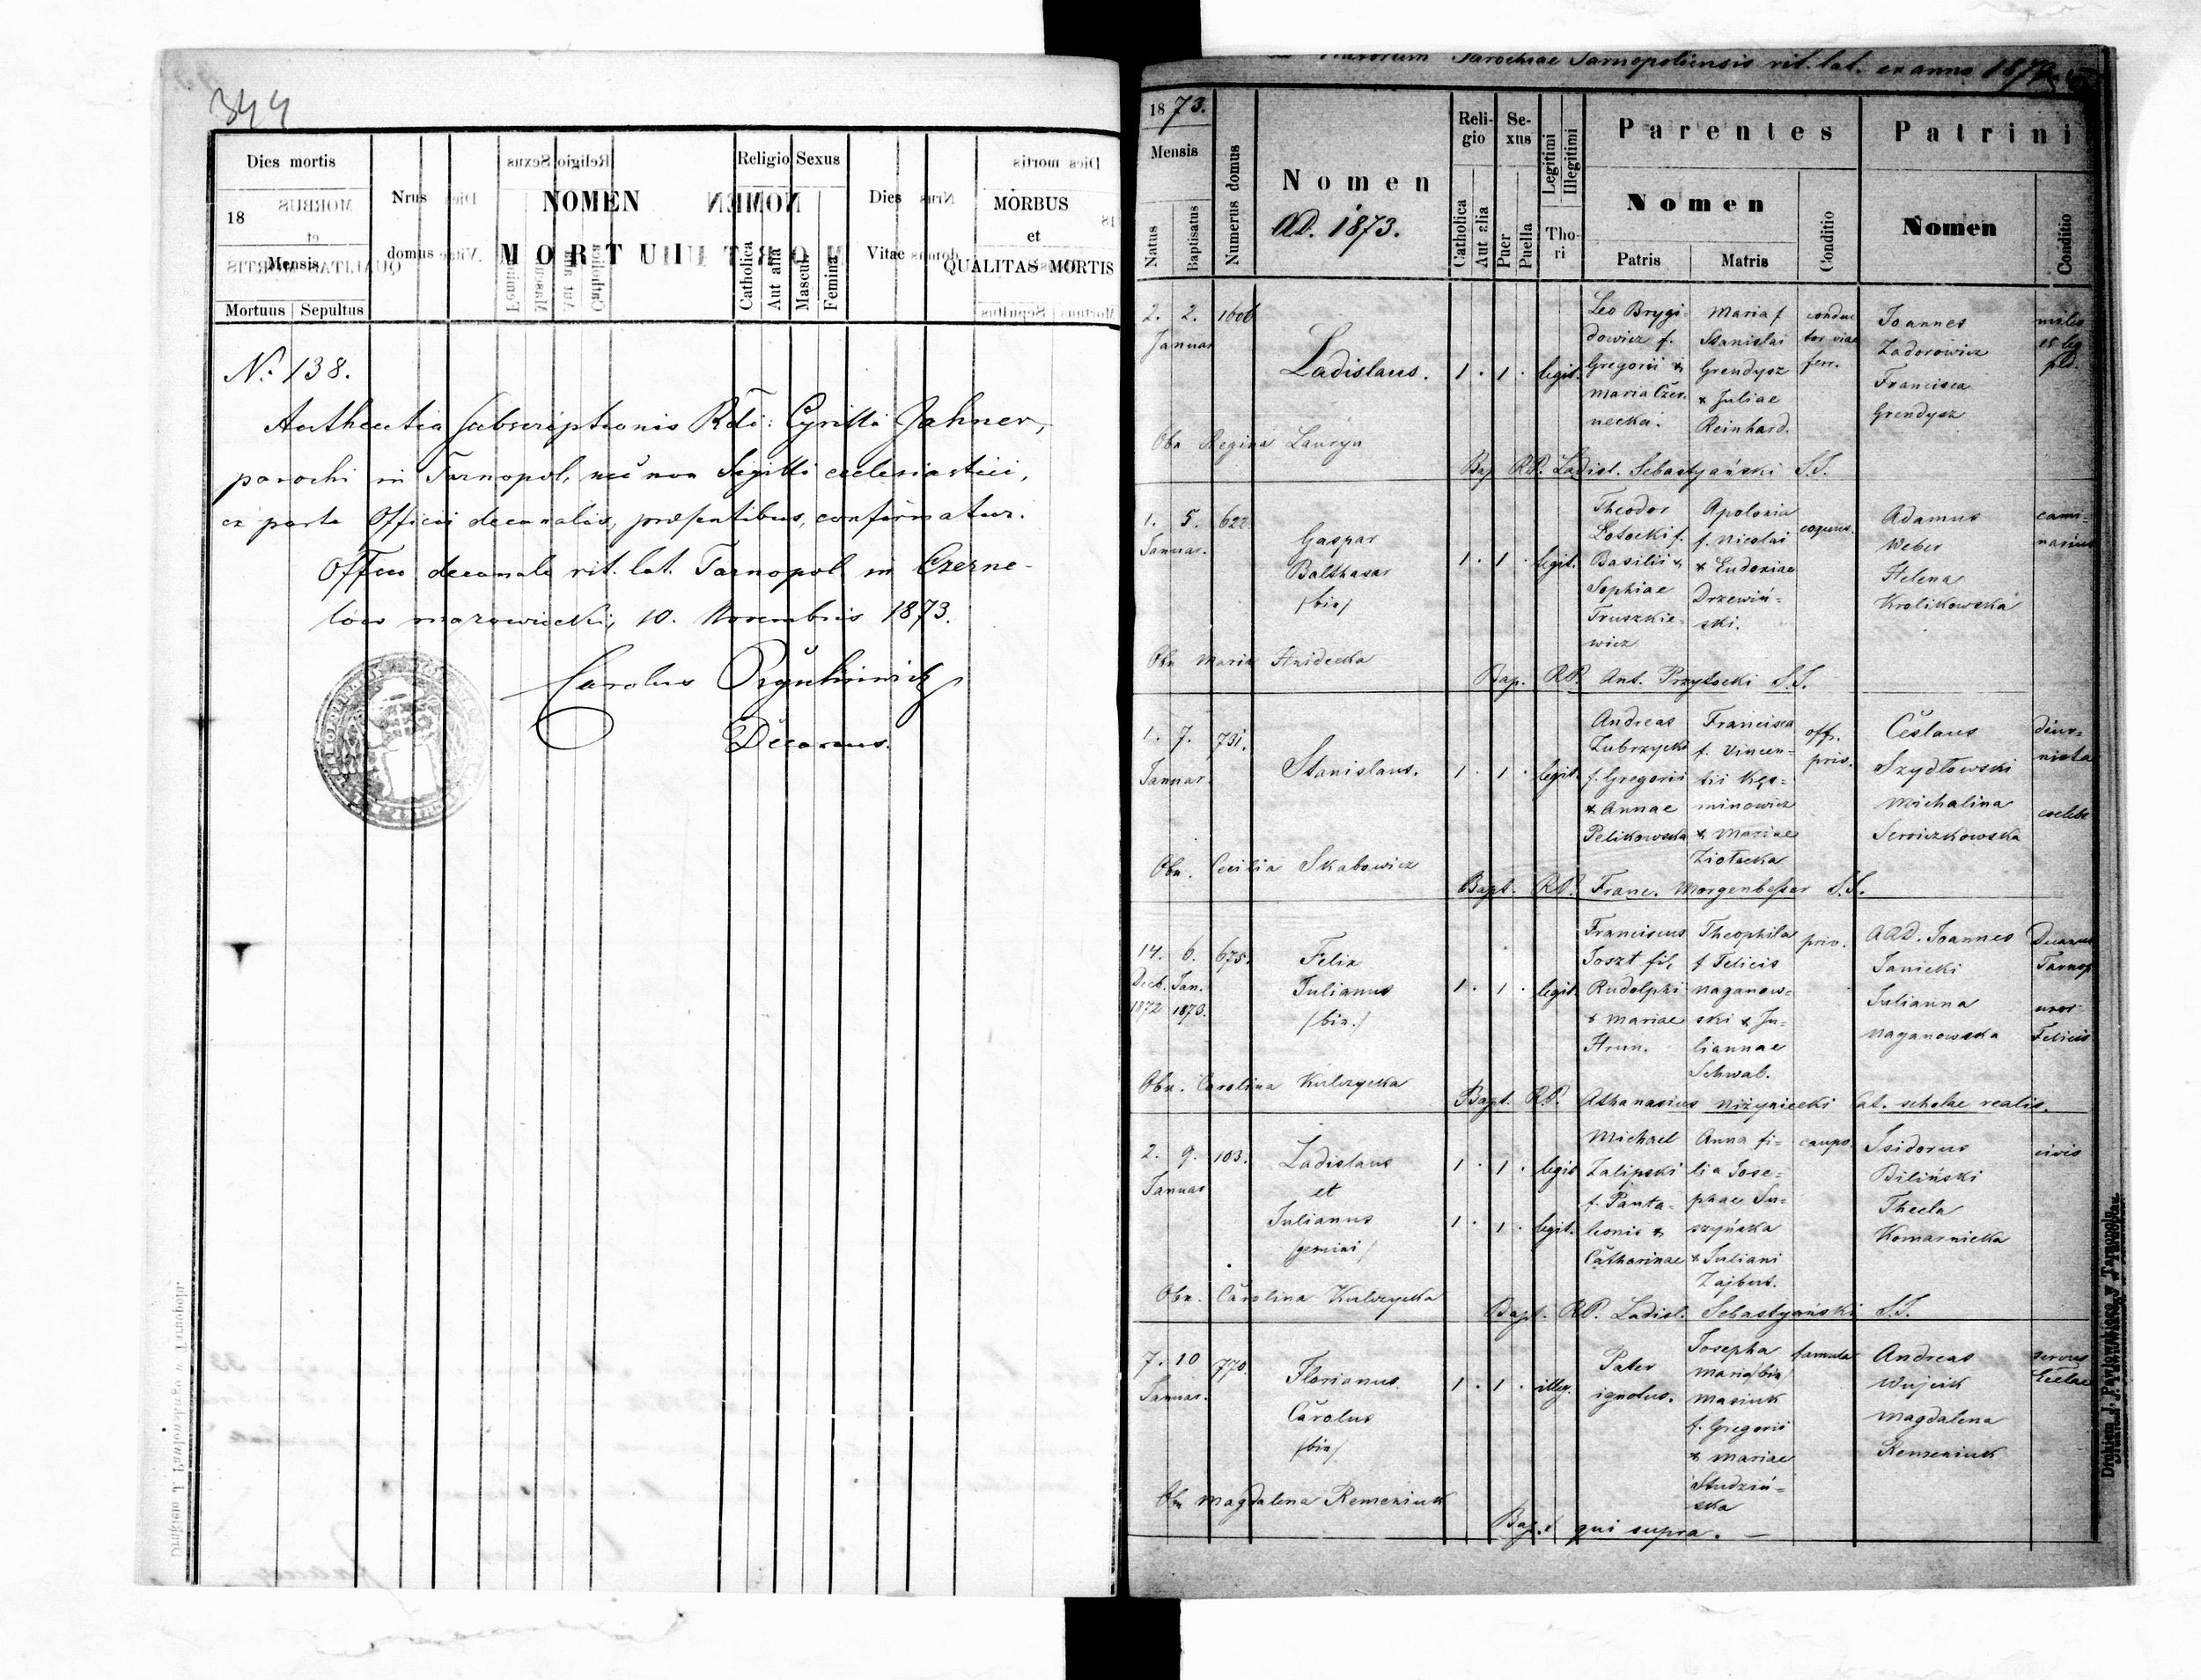 344
Dies mortis
18
Mensis
Mortuus Sepultus
Nrus
domus
NOMEN
MORTUI
Religio Sexus
Catholica
Aut alia
Mascul.
Femina
Dies
Vitae
MORBUS
et
QUALITAS MORTIS
No. 138.
Authentia subscriptionis Rdi: Cyrilli Jahner,
parochi in Tarnopol, nec non Sigilli ecclesiastici,
ex parte Officii decanalis, praesentibus, confirmatur.
Officio decanale rit. lat. Tarnopol. in Czerne-
lów mazowiecki, 10. Novembris 1873.
Carolus
Decanus.
Parochiae Tarnopoliensis rit. lat. ex anno
1873.
Mensis
Natus
Baptisatus
Numerus domus
Nomen
AD. 1873.
Religio
Catholica
Aut alia
Sexus
Puer
Puella
Legitimi
Illegitimi
Thori
Parentes
Nomen
Patris
Matris
Conditio
Patrini
Nomen
Conditio
2. 2.
Januar
Ladislaus.
1 . 1 . legit.
Leo Brygi-
dowicz f.
Gregorii &
Maria Czer-
necka.
Maria f
Stanislai
Grendysz
& Juliae
Reinhard.
conduc
tor viae
ferr.
Joannes
Zadorowicz
Francisca
Grendysz
miles
15 leg
Obs Regina Lauryn
Bap RP. Ladisl. Sebastyański S.J.
1. 5. 622
Januar.
Gaspar
Balthasar
/bin/
1 . 1 . legit.
Theodor
Łotocki f.
Basilii &
Sophiae
Truszkie-
wicz
Apolonia
f. Nicolai
& Eudoxiae
Drzewiń-
ski.
coquus.
Adamus
Weber
Helena
Krolikowska
cami-
narius
Obs Maria Hnidecka
Bap. RP. Ant. Przytocki S.J.
1. 7. 731.
Januar.
Stanislaus.
1 . 1 . legit.
Andreas
Zubrzycki
f. Gregorii
& Annae
Pelikowska
Francisca
f. Vincen-
tii Kęs-
minowicz
& Mariae
Ziołecka
off.
priv.
Česlaus
Szydłowski
Michalina
Serwiczkowska
diur-
nista
coelebs
Obs. Cecilia Skabowicz
Bapt. RP. Franc. Morgenbesser S.J.
14. 6. 675.
Decb. Jan.
1872 1873.
Felix
Julianus
/bin./
1 . 1 . legit.
Franciscus
Joszt fil,
Rudolphi
& Mariae
Hrun.
Theophila
f Felicis
Naganow-
ski & Ju-
liannae
Schwab.
priv.
AAD. Joannes
Janicki
Julianna
Naganowska
Decanus
Tarnop
uxor
Felicis
Obs. Carolina Kulczycka
Bapt. RP. Athanasius Niżyniecki Cat. scholae realis.
2. 9. 103.
Januar
Ladislaus
et
Julianus
/gemini/
1 . 1 . legit
1 . 1 . legit.
Michael
Zalipski
f. Panta-
leonis &
Catharinae
Anna fi-
lia Jose-
phae Su-
szyńska
& Juliani
Zajbert.
caupo.
Isidorus
Biliński
Thecla
Komarnicka
civis
Obs. Carolina Kulczycka
Bapt. RP. Ladisl. Sebastyański S.J.
7. 10 770.
Januar.
Florianus
Carolus
/bin/
1 . 1 . illeg.
Pater
ignotus.
Josepha
Maria/bin/
Masiuk
f. Gregorii
& Mariae
Studziń-
ska
famula
Andreas
Wujcik
Magdalena
Remeniuk
servus
Ecclae
Obs Magdalena Remeniuk
Bapt qui supra. —